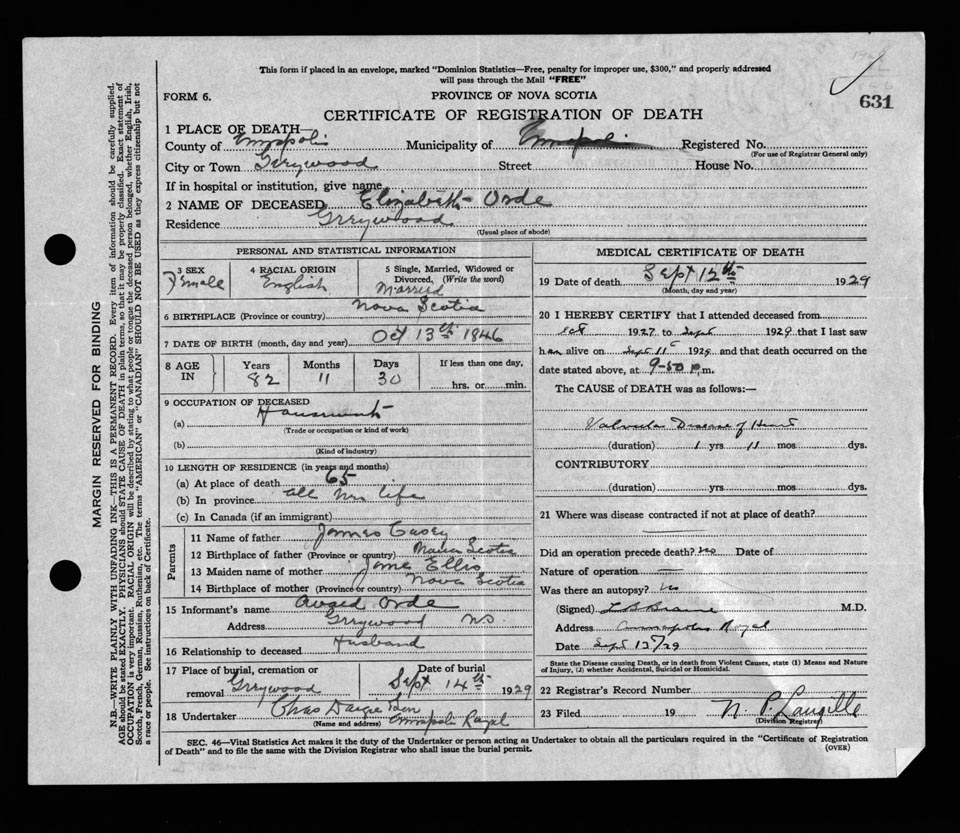 This form if placed in an envelope, marked "Dominion Statistics—Free, penalty for improper use, $300," and properly addressed
will pass through the Mail "FREE"
FORM 6.
PROVINCE OF NOVA SCOTIA
631
CERTIFICATE OF REGISTRATION OF DEATH
1 PLACE OF DEATH—
County of Annapolis Municipality of Annapolis Registered No.
(For use of Registrar General only)
City or Town Greywood Street House No.
If in hospital or institution, give name
2 NAME OF DECEASED Elizabeth Orde
Residence Greywood
(Usual place of abode)
PERSONAL AND STATISTICAL INFORMATION
3 SEX Female
4 RACIAL ORIGIN English
5 Single, Married, Widowed or
Divorced, (Write the word)
Married
6 BIRTHPLACE (Province or country) Nova Scotia
7 DATE OF BIRTH (month, day and year) Oct 13th 1846
8 AGE IN
Years 82
Months 11
Days 30
If less than one day,
hrs. or min.
9 OCCUPATION OF DECEASED
(a) Housework
(Trade or occupation or kind of work)
(b)
(Kind of industry)
10 LENGTH OF RESIDENCE (in years and months)
(a) At place of death 65
(b) In province all her life
(c) In Canada (if an immigrant)
Parents
11 Name of father James Casey
12 Birthplace of father (Province or country) Nova Scotia
13 Maiden name of mother Jane Ellis
14 Birthplace of mother (Province or country) Nova Scotia
15 Informant's name Orde
Address Greywood NS.
16 Relationship to deceased Husband
17 Place of burial, cremation or
removal Greywood
Date of burial
Sept 14th 1929
18 Undertaker Chas
(Name and address) Annapolis Royal
MEDICAL CERTIFICATE OF DEATH
19 Date of death Sept 12th 1929
(Month, day and year)
20 I HEREBY CERTIFY that I attended deceased from
Oct 1927 to Sept 1929 that I last saw
h er alive on Sept 11 1929 and that death occurred on the
date stated above, at 9-50 p.m.
The CAUSE of DEATH was as follows:—
Valvular Disease of Heart
(duration) 1 yrs 11 mos dys.
CONTRIBUTORY
(duration) yrs mos dys.
21 Where was disease contracted if not at place of death?
Did an operation precede death? no Date of
Nature of operation —
Was there an autopsy? no
(Signed) L B Braine M.D.
Address Annapolis Royal
Date Sept 13/29
State the Disease causing Death, or in death from Violent Causes, state (1) Means and Nature
of Injury, (2) whether Accidental, Suicidal or Homicidal.
22 Registrar's Record Number
23 Filed 19 N. P. Langille
(Division Registrar)
SEC. 46—Vital Statistics Act makes it the duty of the Undertaker or person acting as Undertaker to obtain all the particulars required in the "Certificate of Registration
of Death" and to file the same with the Division Registrar who shall issue the burial permit.
(OVER)
MARGIN RESERVED FOR BINDING
N.B.—WRITE PLAINLY WITH UNFADING INK—THIS IS A PERMANENT RECORD. Every item of information should be carefully supplied.
AGE should be stated EXACTLY. PHYSICIANS should STATE CAUSE OF DEATH in plain terms, so that it may be properly classified. Exact statement of
OCCUPATION is very important. RACIAL ORIGIN will be described by stating to what people or tongue the deceased person belonged, whether English, Irish,
Scotch, French, German, Russian, Ruthenian, etc. The terms "AMERICAN" or "CANADIAN" SHOULD NOT BE USED as they express citizenship but not
a race or people. See instructions on back of Certificate.